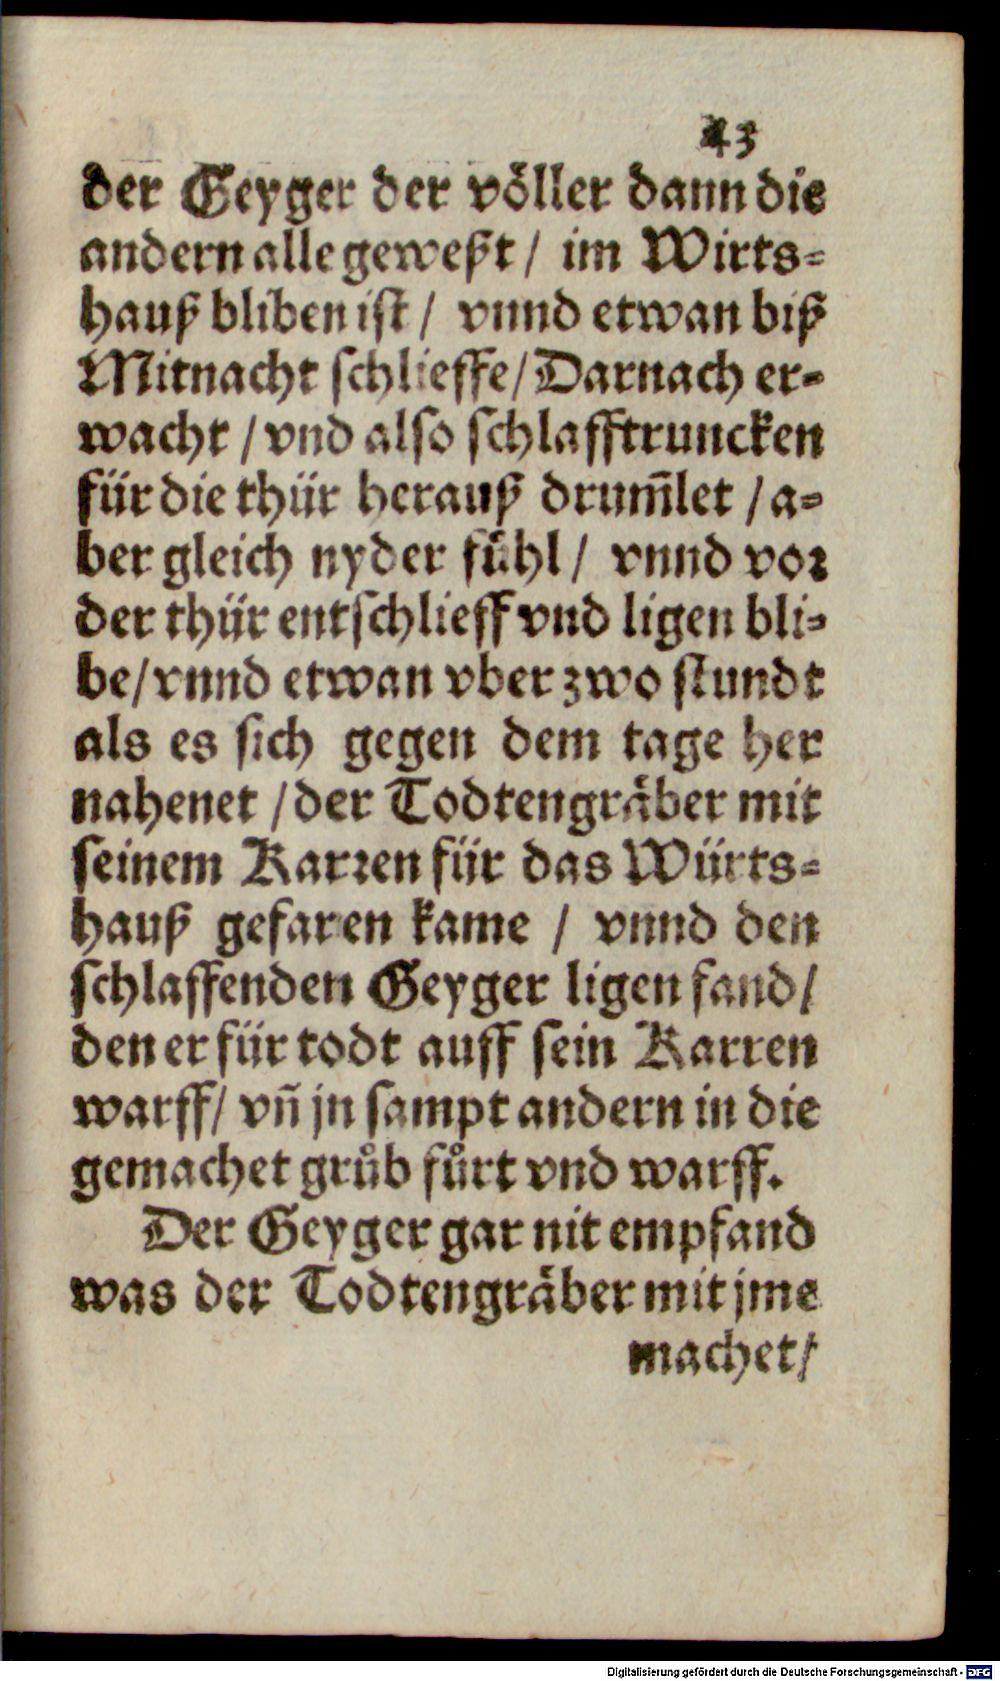 43
der Geyger der völler dann die
andern alle geweßt / im Wirts=
hauß bliben ist / vnnd etwan biß
Mitnacht schlieffe / Darnach er=
wacht / vnd also schlafftruncken
für die thür herauß drum̄let / a=
ber gleich nyder fühl / vnnd vor
der thür entschlieff vnd ligen bli=
be / vnnd etwan vber zwo stundt
als es sich gegen dem tage her
nahenet / der Todtengräber mit
seinem Karren für das Würts=
hauß gefaren kame / vnnd den
schlaffenden Geyger ligen fand /
den er für todt auff sein Karren
warff / vn̄ jn sampt andern in die
gemachet grůb fůrt vnd warff.
Der Geyger gar nit empfand
was der Todtengräber mit jme
machet /
Digitalisierung gefördert durch die Deutsche Forschungsgemeinschaft - DFG